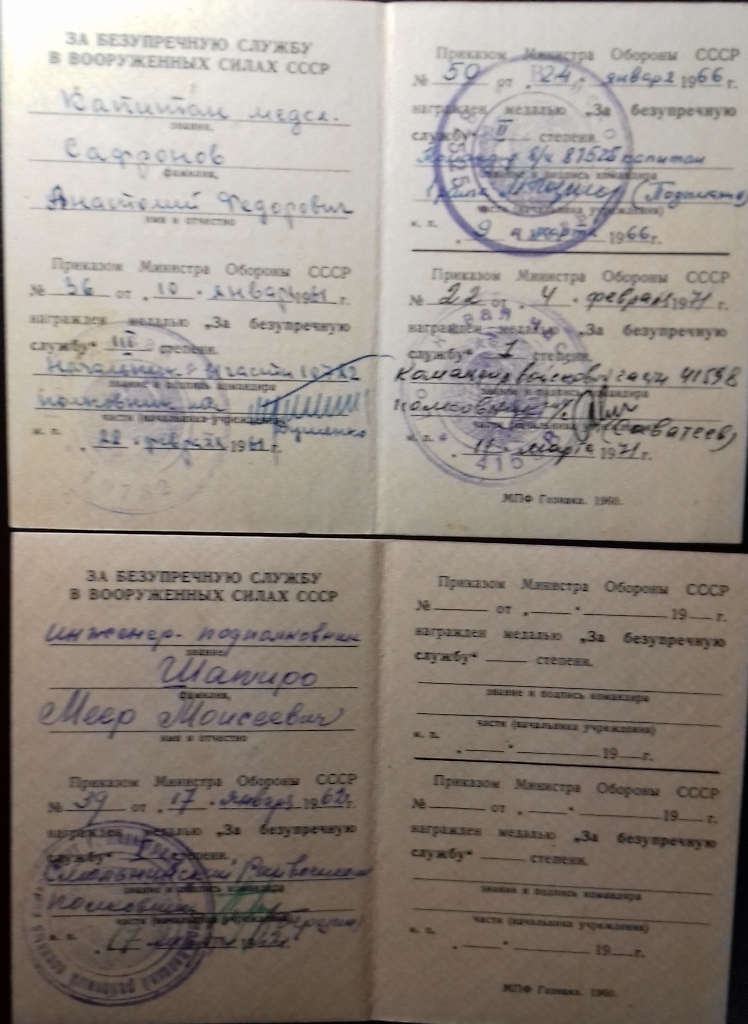 ЗА БЕЗУПРЕЧНУЮ СЛУЖБУ
В ВООРУЖЕННЫХ СИЛАХ СССР
Капитан медсл.
звание,
Сафронов
фамилия,
Анатолий Федорович
имя и отчество
Приказом Министра Обороны СССР
№ 36 от „10" января 1961 г.
награжден медалью „За безупречную
службу" III степени.
Начальник 10782
звание и подпись командира
полковник
части (начальника учреждения)
м. п.
„28" февраля 1961 г.
10782
Приказом Министра Обороны СССР
№ 50 от „24" января 1966 г.
награжден медалью „За безупречную
службу" II степени.
Командир в/ч 87525 капитан
звание и подпись командира
части (начальника учреждения)
м. п.
„9" марта 1966 г.
Приказом Министра Обороны СССР
№ 22 от „4" февраля 1971 г.
награжден медалью „За безупречную
службу" I степени.
Командир войсковой части 41598
звание и подпись командира
полковник (Саватеев)
части (начальника учреждения)
м. п.
„11" марта 1971 г.
МПФ Гознака. 1960.
ЗА БЕЗУПРЕЧНУЮ СЛУЖБУ
В ВООРУЖЕННЫХ СИЛАХ СССР
Инженер-подполковник
звание
Шапиро
фамилия,
Меер Моисеевич
имя и отчество
Приказом Министра Обороны СССР
№ 39 от „17" января 1962 г.
награжден медалью „За безупречную
службу" I степени,
Смольнинский Райвоенком
звание и подпись командира
полковник
части (начальника учреждения)
м. п.
„17"
Приказом Министра Обороны СССР
№ от „ " 19 г.
награжден медалью „За безупречную
службу" степени.
звание и подпись командира
части (начальника учреждения)
м. п.
„ " 19 г.
Приказом Министра Обороны СССР
№ от „ " 19 г.
награжден медалью „За безупречную
службу" степени.
звание и подпись командира
части (начальника учреждения)
м. п.
„ " 19 г.
МПФ Гознака. 1960.